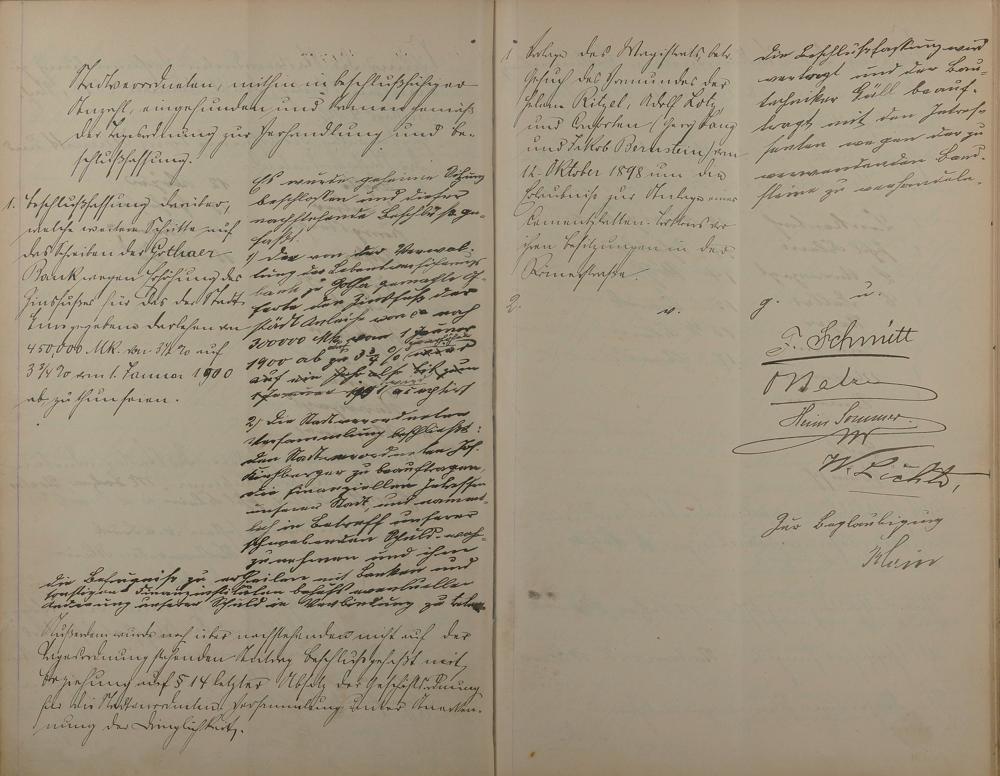 Stadtverordneten, mithin in beschlußfähiger
Anzahl, eingefunden und kamen gemäß
der Tagesordnung zur Verhandlung und Be-
schlußfassung.
1. Beschlußfassung darüber,
welche weitere Schritte auf
das Schreiben der Gothaer
Bank wegen Erhöhung des
Zinsfußes für das der Stadt
hingegebene Darlehen von
450,000 Mk. von 3½ % auf
3¾ % vom 1. Januar 1900
ab, zu thun seien.
Es wurde geheime Sitzung
beschlossen und dieser
nachstehende Beschlüsse ge-
faßt:
1) Der von der Verwal-
tung der Lebensversicherungs
bank zu Gotha gemachte Of-
ferte den Zinsfuß der
städt. Anleihe von noch
300000 Mk. vom 1 Januar
1900 ab zu 3¾ %
auf
Januar 1901 acceptirt
2) Die Stadtverordneten
Versammlung beschließt:
den Stadtverordneten Joh.
Kirchberger zu beauftragen,
die finanziellen Interessen
unserer Stadt, und nament-
lich in Betreff unserer
schwebenden Schuld wahr-
zunehmen und ihm
die Befugniß zu ertheilen mit Banken und
sonstigen Finanzinstituten behufs eventueller
Änderung unserer Schuld in Verbindung zu treten
Außerdem wurde noch über nachstehenden nicht auf der
Tagesordnung stehenden Antrag Beschluß gefaßt mit
Beziehung auf § 14 letzter Absatz der Geschäftsordnung
für die Stadtverordneten-Versammlung unter Anerken-
nung der Dringlichkeit.
1. Vorlage des Magistrats betr.
Gesuch des Vormundes der
Ritzel, Adolf Lotz
und Consorten (Georg Lang
und Jakob Bernstein) vom
12. Oktober 1898 um die
Erlaubniß zur Anlage eines
Cementplatten-Trottoirs vor
ihren Besitzungen in der
Römerstraße.
Die Beschlußfassung wird
vertagt und der Bau-
techniker Füll beauf-
tragt mit den Interes-
senten wegen der zu
verwendenden Band-
steine zu verhandeln.
2.
v. g. u.
F. Schmitt
Hein. Sommer
W. Lichte,
Zur Beglaubigung
Klein